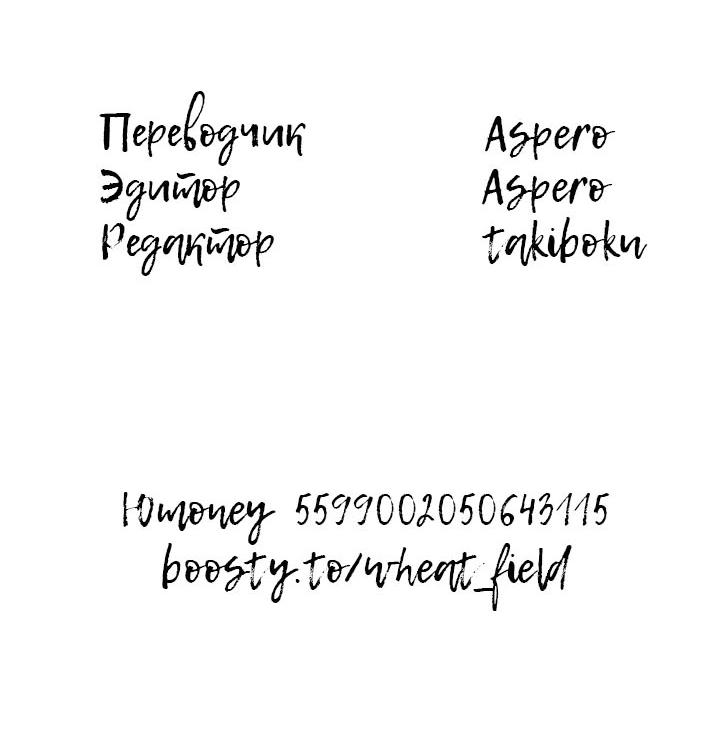 Переводчик Aspero
Эдитор Aspero
Редактор takiboku
Юmoney 5599002050643115
boosty.to/wheat_field